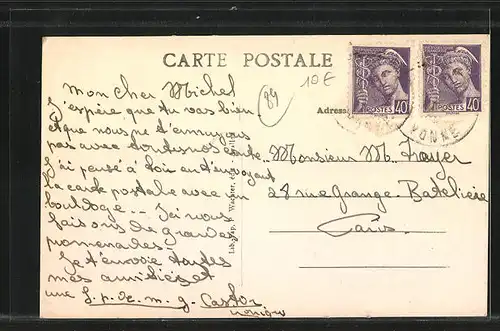 CARTE POSTALE
(89)
10 E
Adresse
POSTES 40
POSTES 40
YONNE
Mon cher Michel
J'espère que tu vas bien
et que nous ne t'ennuyons
pas avec
J'ai pensé à toi en t'envoyant
la carte postale avec un
bouldogue... Ici nous
faisons de grandes
promenades.
Je t'envoie toutes
mes amitiés et
une g. p. de m. g. Castor
Monsieur M. Frayer
28 rue Grange-Batelière
Paris